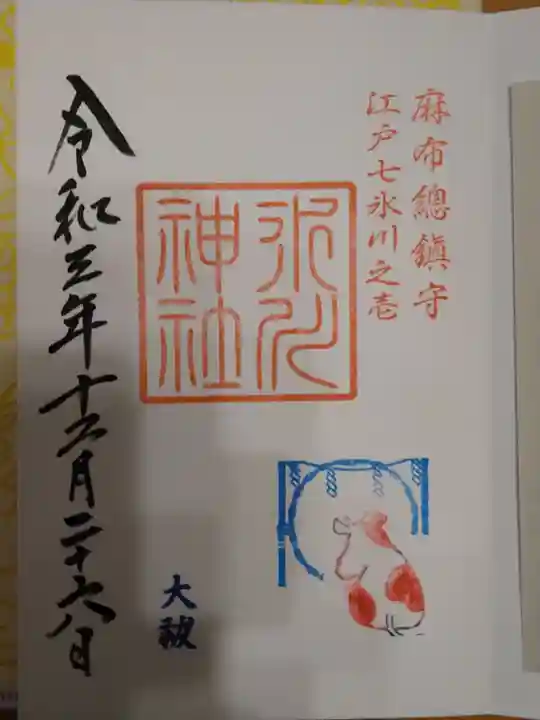 麻布總鎮守
江戸七氷川之壱
氷川
神社
大祓
令和三年十二月二十六日